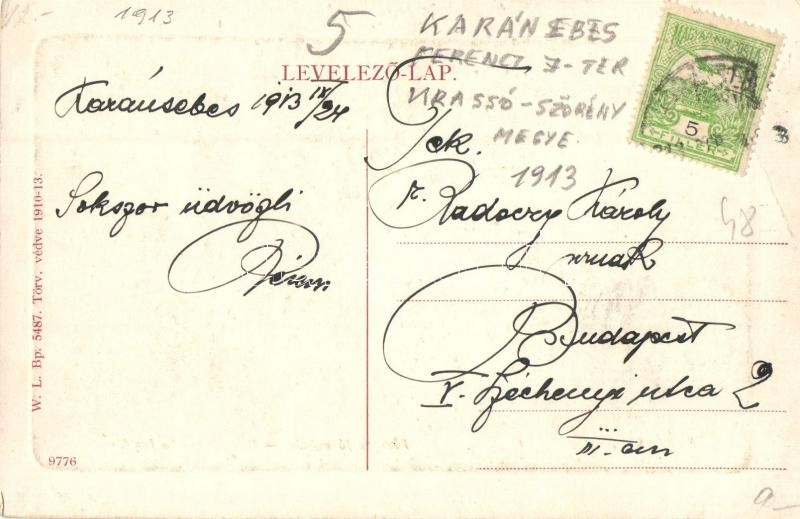 1913
5
KARÁNSEBES
FERENCZ J-TÉR
KRASSÓ-SZÖRÉNY
MEGYE
1913
LEVELEZŐ-LAP.
Karánsebes 1913 IV/24
Sokszor üdvözli
Tek.
Radoczy Károly
urnak
Budapest
V. Széchenyi utca 2
III. em
MAGYAR KIR. POSTA
5
FILLÉR
48
W. L. Bp. 5487. Törv. védve 1910-13.
9776